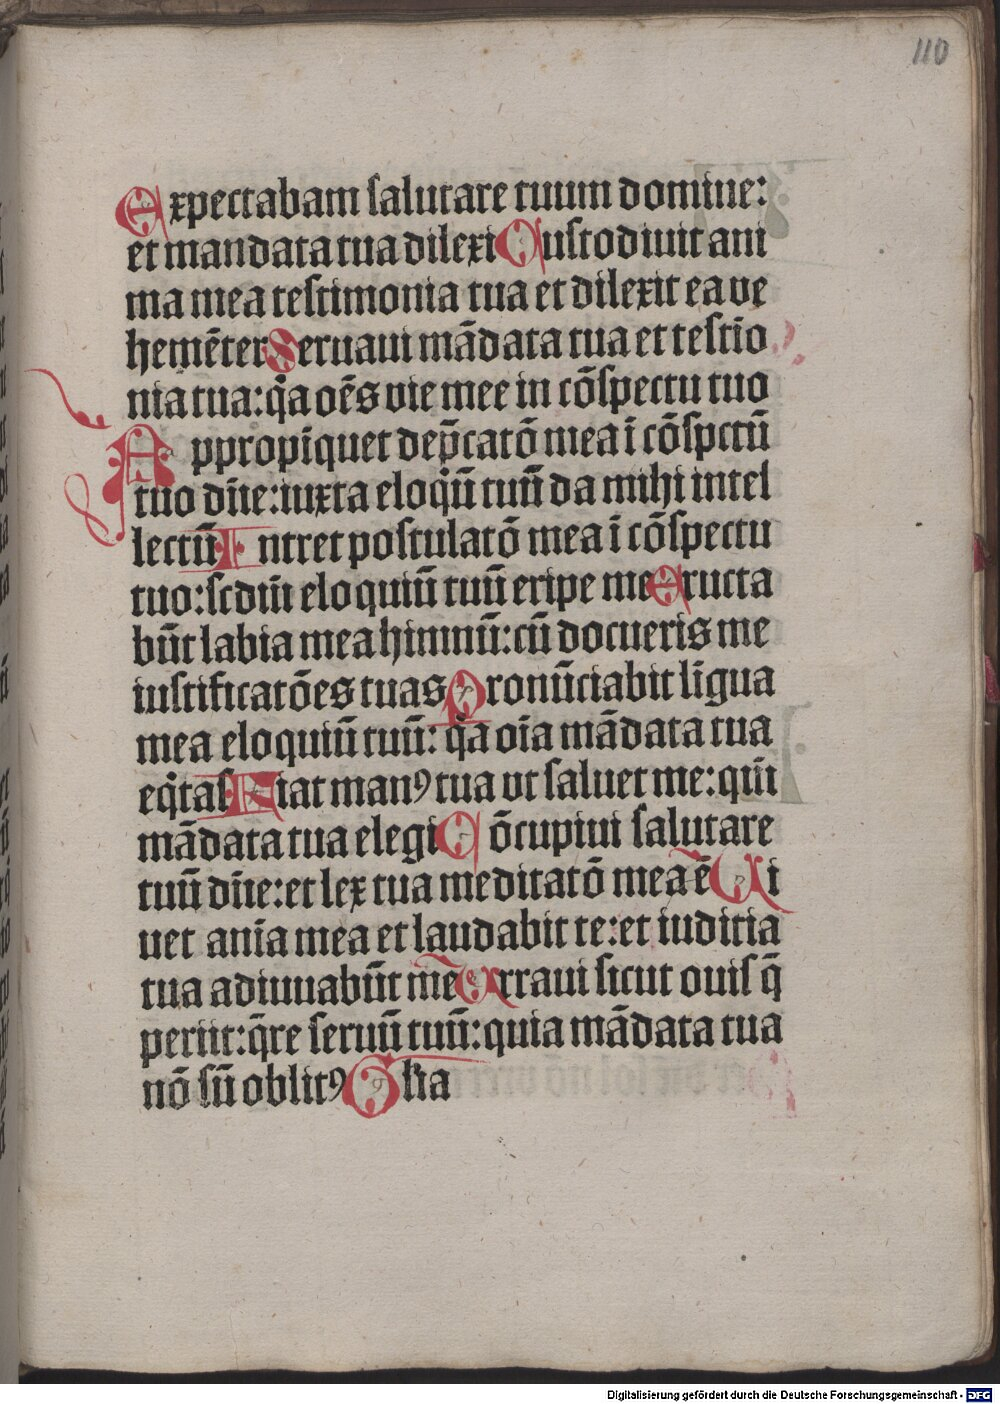 110
Expectabam salutare tuum domine:
et mandata tua dilexi Custodiuit ani
ma mea testimonia tua et dilexit ea ve
hemēter Seruaui mādata tua et testīo
nia tua: q̄a oēs vie mee in cōspectu tuo
Appropīquet dep̄catō mea ī cōspctū
tuo dn̄e: iuxta eloq̄ū tuū da mihi intel
lectū Intret postulatō mea ī cōspectu
tuo: scdm̄ eloquiū tuū eripe me Eructa
būt labia mea himnū: cū docueris me
iustificatōes tuas Pronūciabit līgua
mea eloquiū tuū: q̄a oīa mādata tua
eq̄tas Fiat manꝰ tua vt saluet me: qm̄
mādata tua elegi Cōcupiui salutare
tuū dn̄e: et lex tua meditatō mea ē Vi
uet anīa mea et laudabit te: et iuditia
tua adiuuabūt me Erraui sicut ouis q̄
periit: q̄re seruū tuū: quia mādata tua
nō sū oblitꝰ Glīa
Digitalisierung gefördert durch die Deutsche Forschungsgemeinschaft - DFG